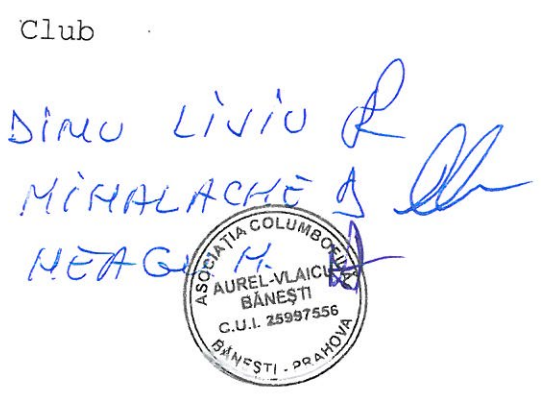 Club
DINU LIVIU
MIHALACHE D
NEAGU M.
ASOCIAȚIA COLUMBOFILĂ
AUREL-VLAICU
BĂNEȘTI
C.U.I. 25997556
BĂNEȘTI - PRAHOVA